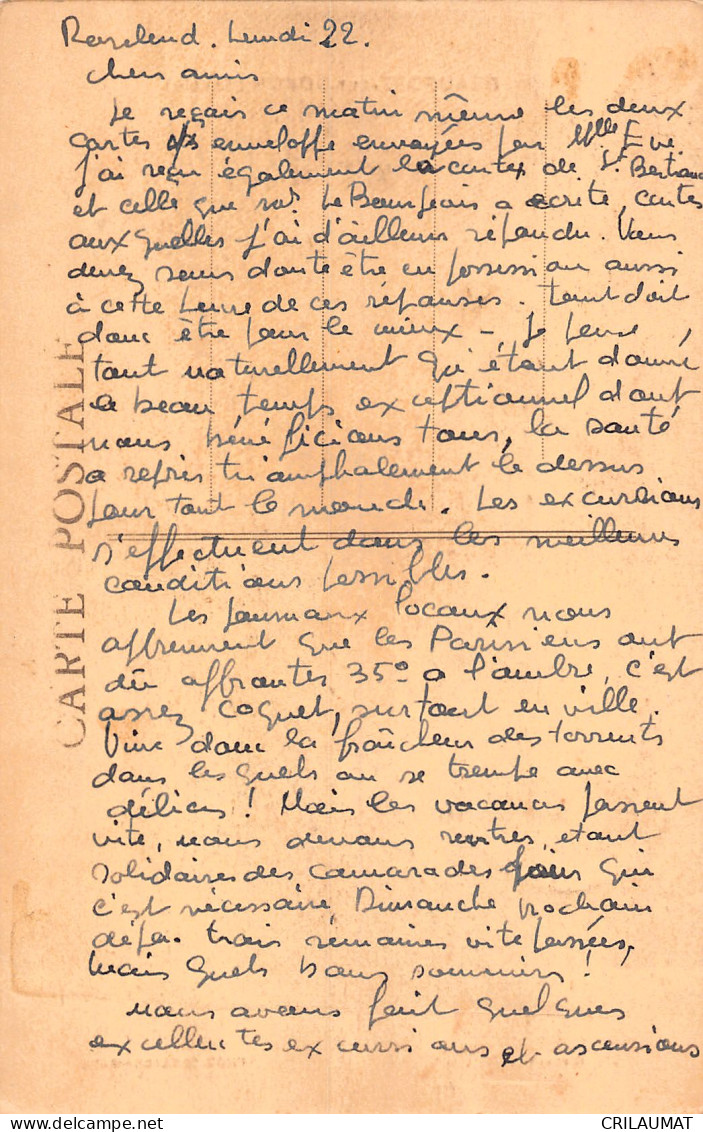 Roselend. Lundi 22.
Chers amis
Je reçois ce matin même les deux
cartes s/s enveloppe envoyées par Mlle Eve.
J'ai reçu également la cartes de St Bertrand
et celle que Mr. Le Bourgeois a écrite, cartes
aux quelles j'ai d'ailleurs répondu. Vous
devez sans doute être en possession aussi
à cette heure de ces réponses. Tout doit
donc être pour le mieux - Je pense,
tout naturellement qu'étant donné
le beau temps exceptionnel dont
nous bénéficions tous, la santé
a repris triomphalement le dessus
pour tout le monde. Les excursions
s'effectuent dans les meilleures
conditions possibles.
Les journaux locaux nous
apprennent que les Parisiens ont
dû affrontés 35° a l'ombre, c'est
assez coquet, surtout en ville.
Vive donc la fraîcheur des torrents
dans lesquels on se trempe avec
délices! Mais les vacances passent
vite, nous devons rentrer, étant
solidaires des camarades pour qui
c'est nécessaire, Dimanche prochain
déjà. trois semaines vite passées,
Mais quels bons souvenirs!
Nous avons fait quelques
excellentes excursions et ascensions
CARTE POSTALE
CRILAUMAT